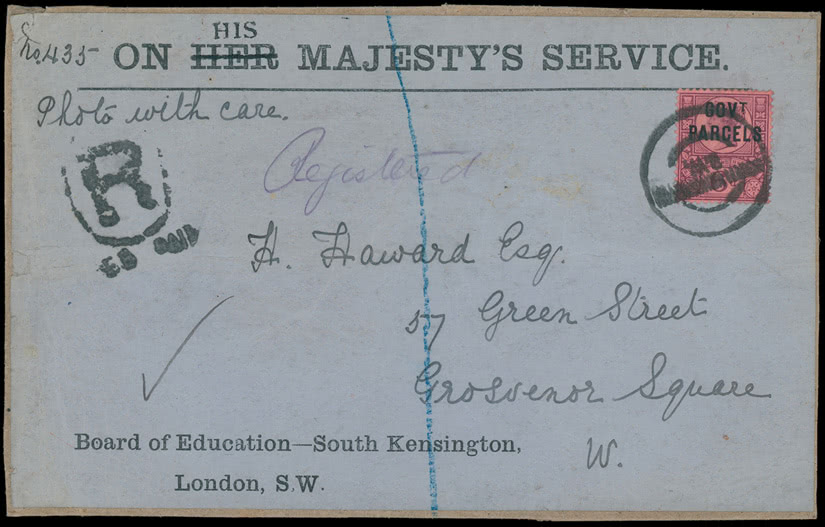 No. 435
HIS
ON HER MAJESTY'S SERVICE.
Photo with care.
GOVT
PARCELS
R
Registered
H. Haward Esq.
57 Green Street
Grosvenor Square
W.
Board of Education—South Kensington,
London, S.W.